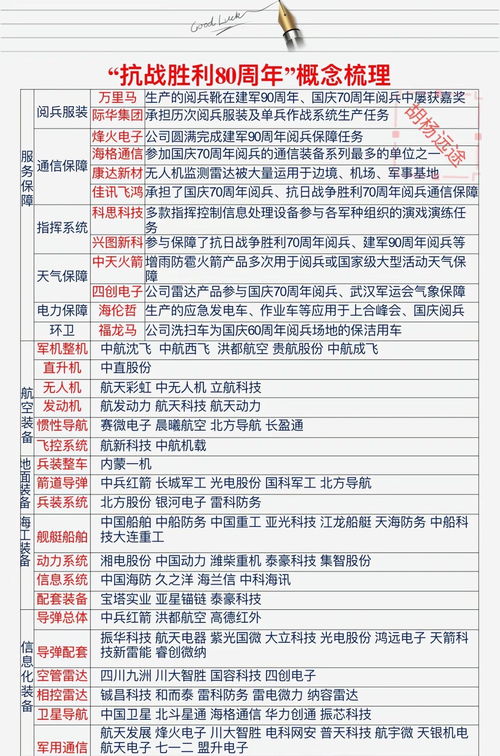 Good Luck
“抗战胜利80周年”概念梳理
服务保障
阅兵服装
万里马 生产的阅兵靴在建军90周年、国庆70周年阅兵中屡获嘉奖
际华集团 承担历次阅兵服装及单兵作战系统生产任务
胡杨远途
通信保障
烽火电子 公司圆满完成建军90周年阅兵保障任务
海格通信 参加国庆70周年阅兵的通信装备系列最多的单位之一
康达新材 无人机监测雷达被大量运用于边境、机场、军事基地
佳讯飞鸿 承担了国庆70周年阅兵、抗日战争胜利70周年阅兵通信保障
指挥系统
科思科技 多款指挥控制信息处理设备参与各军种组织的演戏演练任
务
兴图新科 参与保障了抗日战争胜利70周年阅兵、建军90周年阅兵等
天气保障
中天火箭 增雨防雹火箭产品多次用于阅兵或国家级大型活动天气保
障
四创电子 公司雷达产品参与国庆70周年阅兵、武汉军运会气象保障
电力保障 海伦哲 生产的应急发电车、作业车等应用于上合峰会、国庆阅兵
环卫 福龙马 公司洗扫车为国庆60周年阅兵场地的保洁用车
航空装备
军机整机 中航沈飞 中航西飞 洪都航空 贵航股份 中航成飞
直升机 中直股份
无人机 航天彩虹 中无人机 立航科技
发动机 航发动力 航天科技 航天动力
惯性导航 赛微电子 晨曦航空 北方导航 长盈通
飞控系统 航新科技 中航机载
地面装备
兵装整车 内蒙一机
箭道导弹 中兵红箭 长城军工 光电股份 国科军工 北方导航
兵装系统 北方股份 银河电子 雷科防务
海工装备
舰艇船舶 中国船舶 中船防务 中国重工 亚光科技 江龙船艇 天海防务 中船科
技大连重工
动力系统 湘电股份 中国动力 潍柴重机 泰豪科技 集智股份
信息系统 中国海防 久之洋 海兰信 中科海讯
配套装备 宝塔实业 亚星锚链 泰豪科技
信息化装备
导弹总体 中兵红箭 洪都航空 高德红外
导弹配套 振华科技 航天电器 紫光国微 大立科技 光电股份 鸿远电子 天箭科
技新雷能 睿创微纳
空管雷达 四川九洲 川大智胜 国容科技 四创电子
相控雷达 铖昌科技 和而泰 雷科防务 雷电微力 纳容雷达
卫星导航 中国卫星 北斗星通 海格通信 华力创通 振芯科技
军用通信 航天发展 烽火电子 川大智胜 电科网安 普天科技 航宇微 天银机电
航天电子 七一二 盟升电子